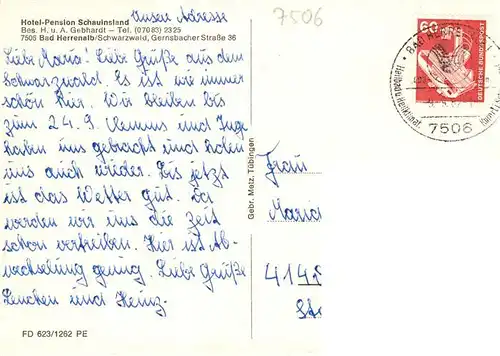 Unsere Adresse
7506
Hotel-Pension Schauinsland
Bes. H. u. A. Gebhardt — Tel. (07083) 2325
7506 Bad Herrenalb/Schwarzwald, Gernsbacher Straße 36
Liebe Maria! Liebe Grüße aus dem
Schwarzwald. Es ist wie immer
schön hier. Wir bleiben bis
zum 24.9. Klemens und Inge
haben uns gebracht und holen
uns auch wieder. Bis jetzt
ist das Wetter gut. Da
werden wir uns die Zeit
schon vertreiben. Hier ist Ab-
wechselung genug. Liebe Grüße
Lenchen und Heinz.
FD 623/1262 PE
Gebr. Metz, Tübingen
60
DEUTSCHE BUNDESPOST
BAD
7506
Frau
Maria
4145